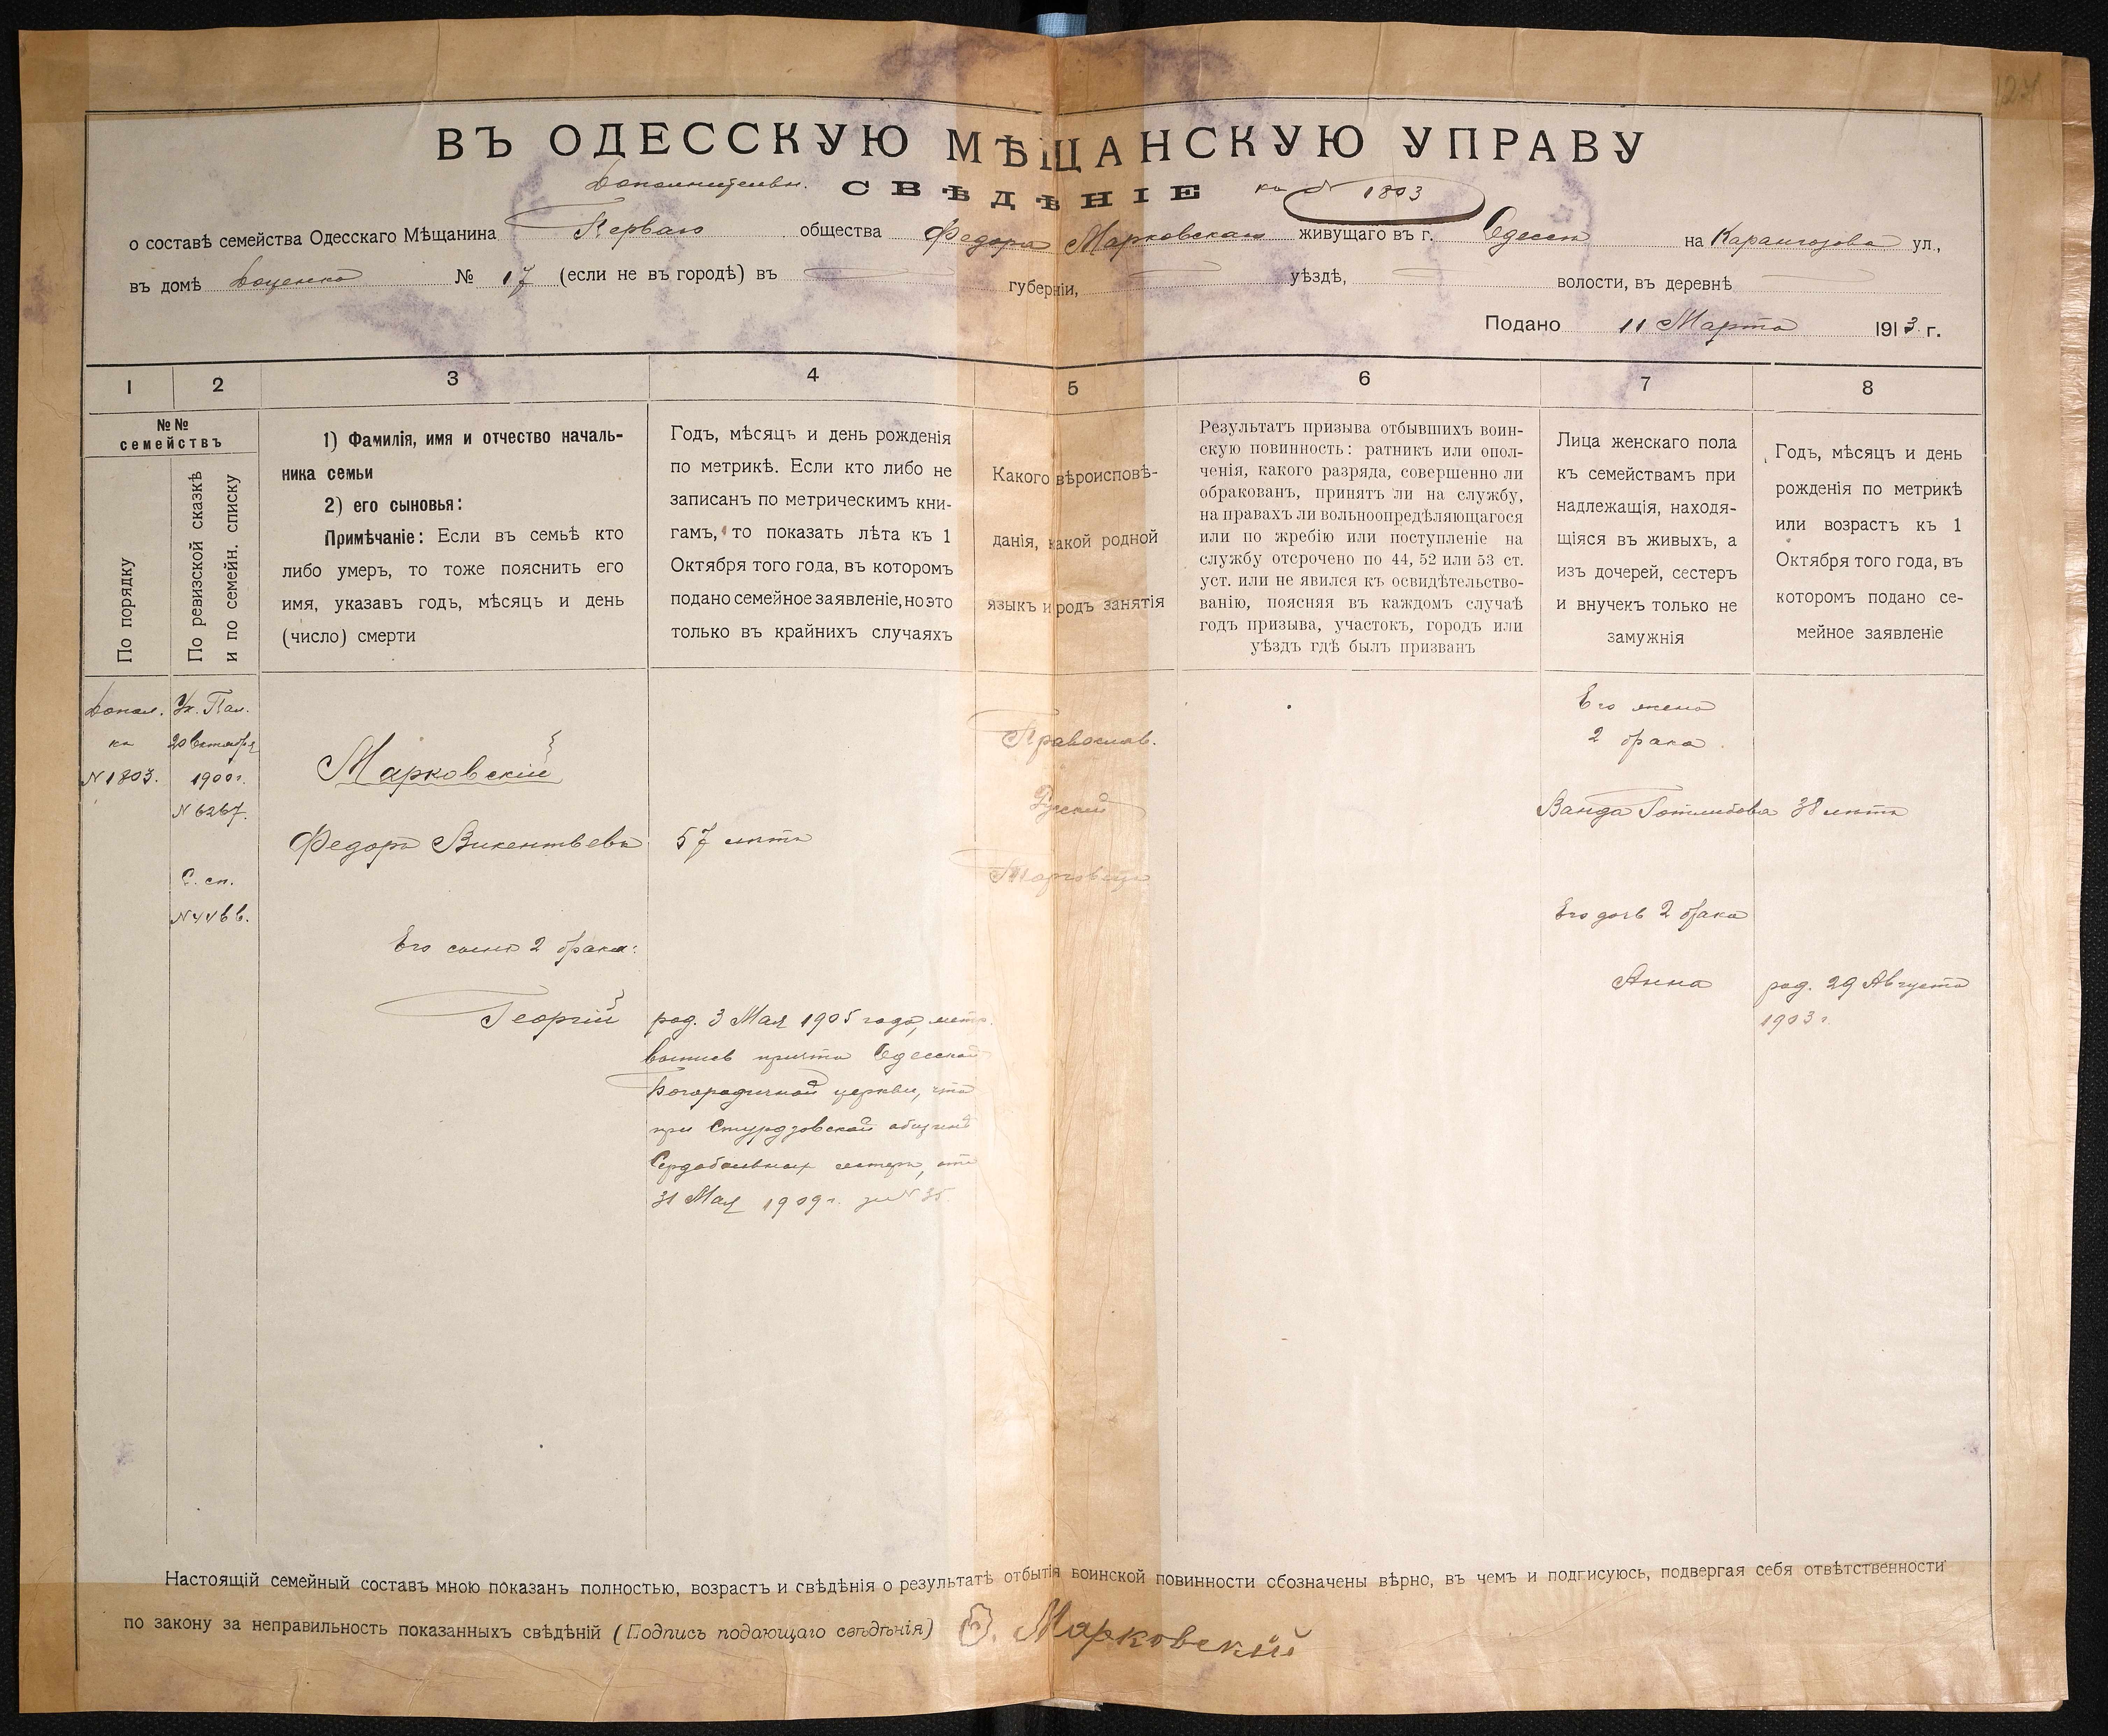 ВЪ ОДЕССКУЮ МѢЩАНСКУЮ УПРАВУ
Дополнительн. СВѢДѢНІЕ къ № 1803
о составѣ семейства Одесскаго Мѣщанина Перваго общества Федора Марковскаго живущаго въ г. Одессѣ на Карангозова ул.,
въ домѣ Доценко № 17 (если не въ городѣ) въ губерніи, уѣздѣ, волости, въ деревнѣ
Подано 11 Марта 1913 г.
1 2 3 4 5 6 7 8
№№
семействъ
По порядку
По ревизской сказкѣ
и по семейн. списку
1) Фамилія, имя и отчество началь-
ника семьи
2) его сыновья:
Примѣчаніе: Если въ семьѣ кто
либо умеръ, то тоже пояснить его
имя, указавъ годъ, мѣсяцъ и день
(число) смерти
Годъ, мѣсяцъ и день рожденія
по метрикѣ. Если кто либо не
записанъ по метрическимъ кни-
гамъ, то показать лѣта къ 1
Октября того года, въ которомъ
подано семейное заявленіе, но это
только въ крайнихъ случаяхъ
Какого вѣроисповѣ-
данія, какой родной
языкъ и родъ занятія
Результатъ призыва отбывшихъ воин-
скую повинность: ратникъ или опол-
ченія, какого разряда, совершенно ли
обракованъ, принятъ ли на службу,
на правахъ ли вольноопредѣляющагося
или по жребію или поступленіе на
службу отсрочено по 44, 52 или 53 ст.
уст. или не явился къ освидѣтельство-
ванію, поясняя въ каждомъ случаѣ
годъ призыва, участокъ, городъ или
уѣздъ гдѣ былъ призванъ
Лица женскаго пола
къ семействамъ при
надлежащія, находя-
щіяся въ живыхъ, а
изъ дочерей, сестеръ
и внучекъ только не
замужнія
Годъ, мѣсяцъ и день
рожденія по метрикѣ
или возрастъ къ 1
Октября того года, въ
которомъ подано се-
мейное заявленіе
Допол.
къ
№ 1803.
Ук. Пал.
20 Октября
1900 г.
№ 6267.
С. сп.
Марковскій
Федоръ Викентьевъ
Его сынъ 2 брака:
Георгій
57 лѣтъ
род. 3 Мая 1905 года, метр.
выпись причта Одесской
Богородичной церкви, что
при Стурдзовской общинѣ
Сердобольныхъ сестеръ, отъ
31 Мая 1909 г. за № 35.
Православ.
Рускій
Торговецъ
Его жена
2 брака
Ванда Готлибова 38 лѣтъ
Его дочь 2 брака
Анна
род. 29 Августа
1903 г.
Настоящій семейный составъ мною показанъ полностью, возрастъ и свѣдѣнія о результатѣ отбытія воинской повинности обозначены вѣрно, въ чемъ и подгисуюсь, подвергая себя отвѣтственности
по закону за неправильность показанныхъ свѣдѣній (Подпись подающаго свѣдѣнія) Ф. Марковскій